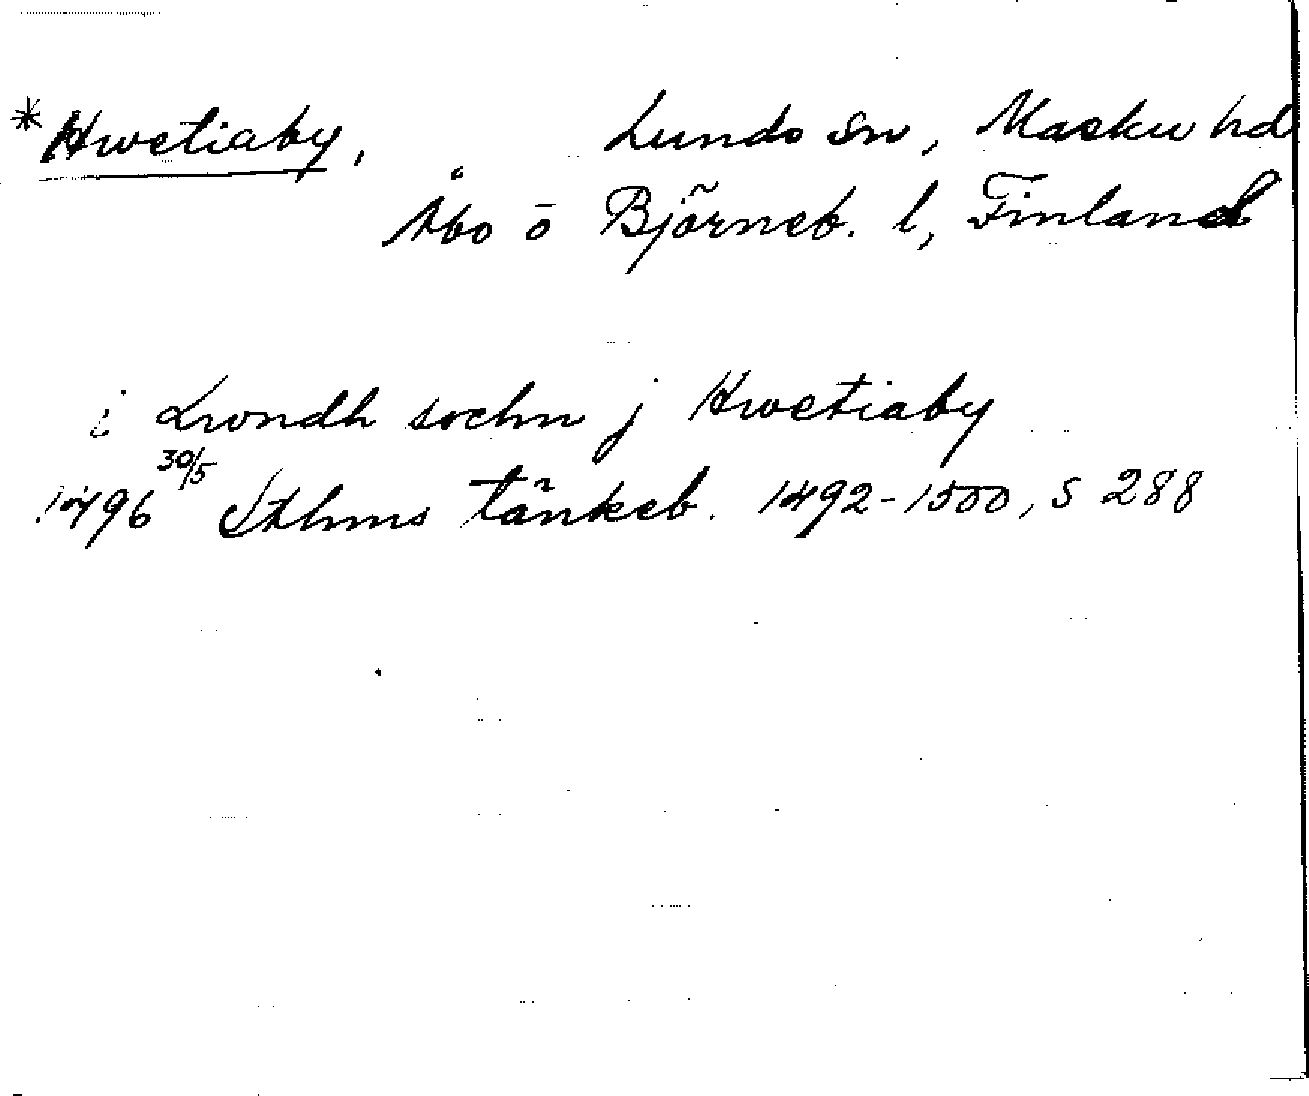 *Hwetiaby, Lundo sn, Masku hd
Åbo o Björneb. l, Finland
i Lwndh sochn j Hwetiaby
1496 30/5 Sthlms tänkeb. 1492-1500, s 288